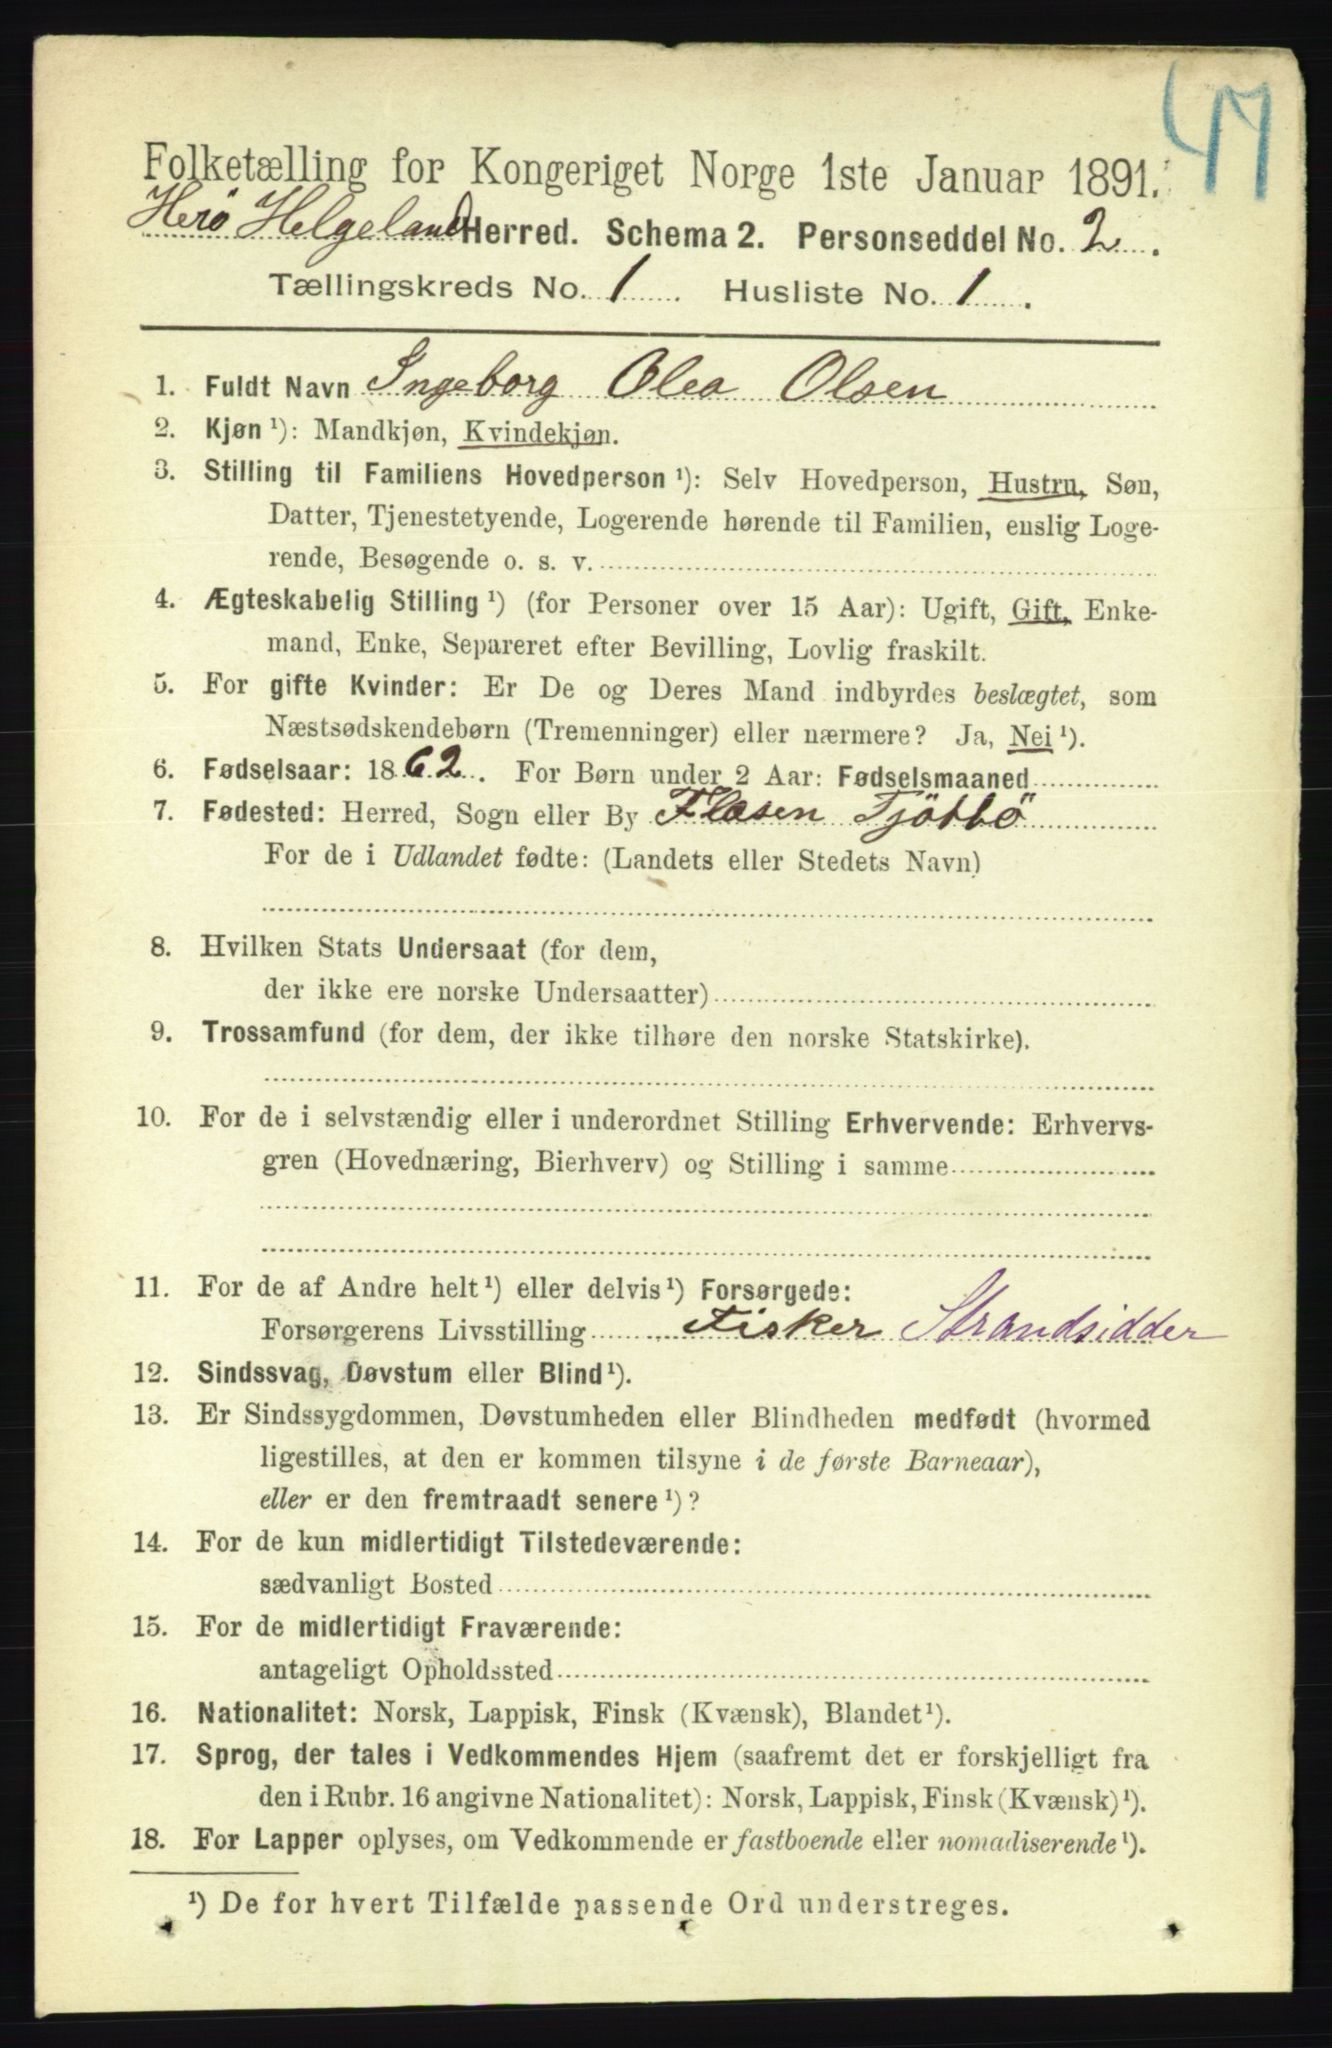 47
Folketælling for Kongeriget Norge 1ste Januar 1891.
Herö Helgeland Herred. Schema 2. Personseddel No. 2.
Tællingskreds No. 1. Husliste No. 1.
1. Fuldt Navn Ingeborg Olea Olsen
2. Kjøn ¹): Mandkjøn, Kvindekjøn.
3. Stilling til Familiens Hovedperson ¹): Selv Hovedperson, Hustru, Søn,
Datter, Tjenestetyende, Logerende hørende til Familien, enslig Loge-
rende, Besøgende o. s. v.
4. Ægteskabelig Stilling ¹) (for Personer over 15 Aar): Ugift, Gift, Enke-
mand, Enke, Separeret efter Bevilling, Lovlig fraskilt.
5. For gifte Kvinder: Er De og Deres Mand indbyrdes beslægtet, som
Næstsødskendebørn (Tremenninger) eller nærmere? Ja, Nei ¹).
6. Fødselsaar: 1862. For Børn under 2 Aar: Fødselsmaaned
7. Fødested: Herred, Sogn eller By Flasen Tjöttö
For de i Udlandet fødte: (Landets eller Stedets Navn)
8. Hvilken Stats Undersaat (for dem,
der ikke ere norske Undersaatter)
9. Trossamfund (for dem, der ikke tilhøre den norske Statskirke).
10. For de i selvstændig eller i underordnet Stilling Erhvervende: Erhvervs-
gren (Hovednæring, Bierhverv) og Stilling i samme
11. For de af Andre helt ¹) eller delvis ¹) Forsørgede:
Forsørgerens Livsstilling Fisker Strandsidder
12. Sindssvag, Døvstum eller Blind ¹).
13. Er Sindssygdommen, Døvstumheden eller Blindheden medfødt (hvormed
ligestilles, at den er kommen tilsyne i de første Barneaar),
eller er den fremtraadt senere ¹)?
14. For de kun midlertidigt Tilstedeværende:
sædvanligt Bosted
15. For de midlertidigt Fraværende:
antageligt Opholdssted
16. Nationalitet: Norsk, Lappisk, Finsk (Kvænsk), Blandet ¹).
17. Sprog, der tales i Vedkommendes Hjem (saafremt det er forskjelligt fra
den i Rubr. 16 angivne Nationalitet): Norsk, Lappisk, Finsk (Kvænsk) ¹).
18. For Lapper oplyses, om Vedkommende er fastboende eller nomadiserende ¹).
¹) De for hvert Tilfælde passende Ord understreges.